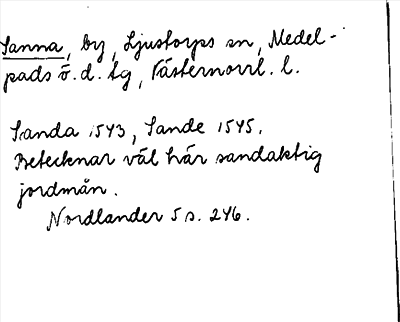 Sanna, by, Ljustorps sn, Medel-
pads ö. d. tg, Västernorrl. l.
Sanda 1543, Sande 1545.
Betecknar väl här sandaktig
jordmån.
Nordlander 5 s. 246.